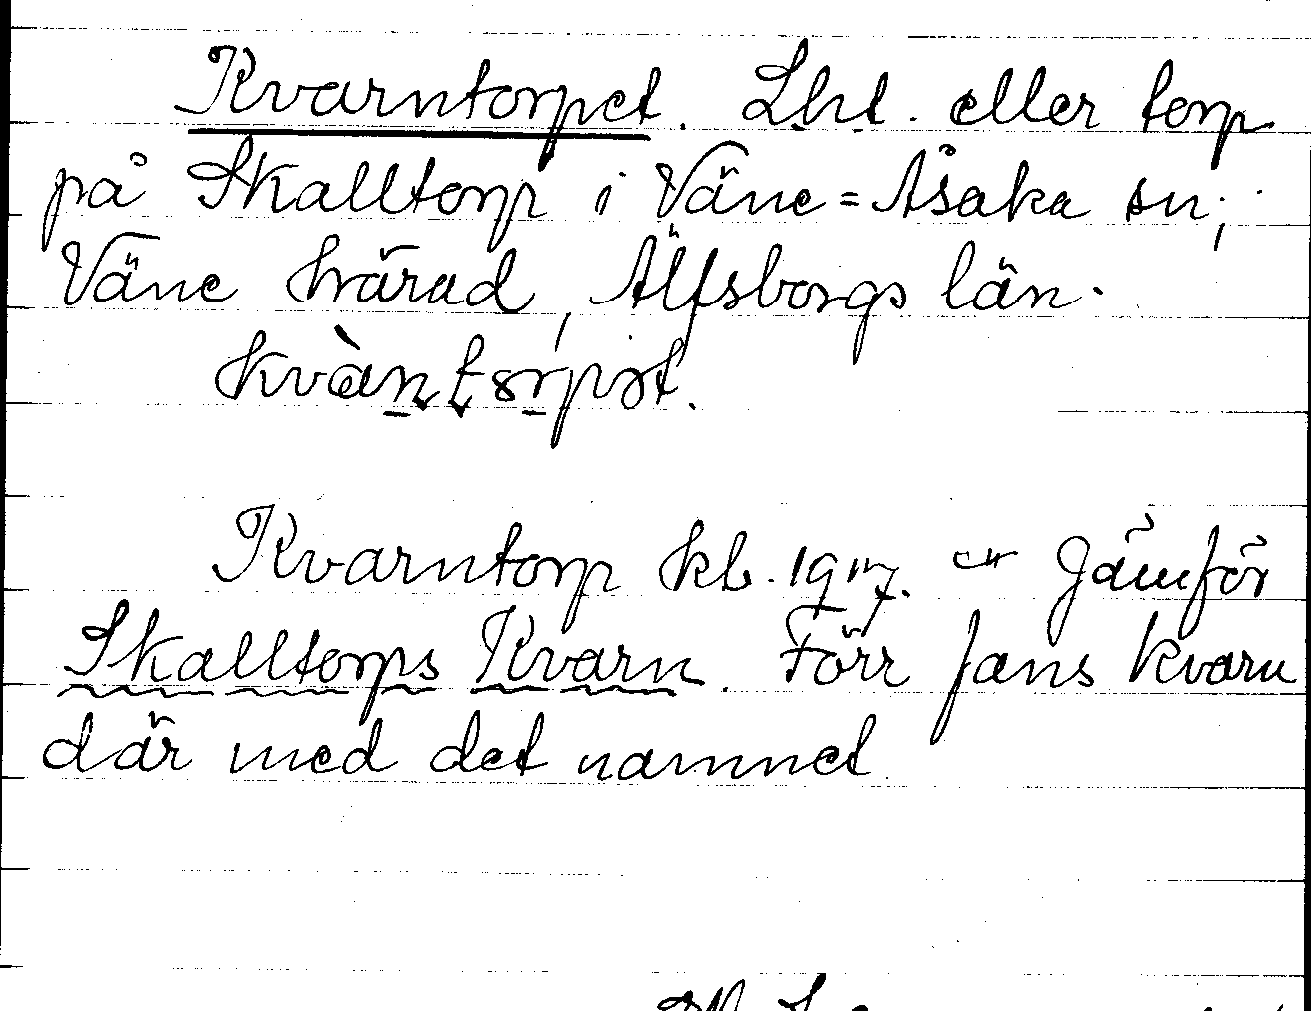 Kvarntorpet. Lht. eller torp
på Skalltorp i Väne=Åsaka sn;
Väne härad, Älfsborgs län.
kvàntorpət.
Kvarntorp kb. 1917. Jämför
Skalltorps Kvarn. Förr fans kvarn
där med det namnet